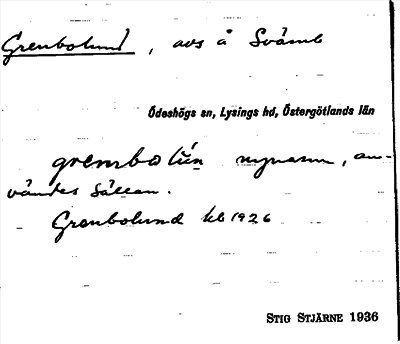 Grenbolund, avs å Svämb
Ödeshögs sn, Lysings hd, Östergötlands län
grembolún mynann, an-
vändes sällan.
Grenbolund kb 1926
STIG STJÄRNE 1936